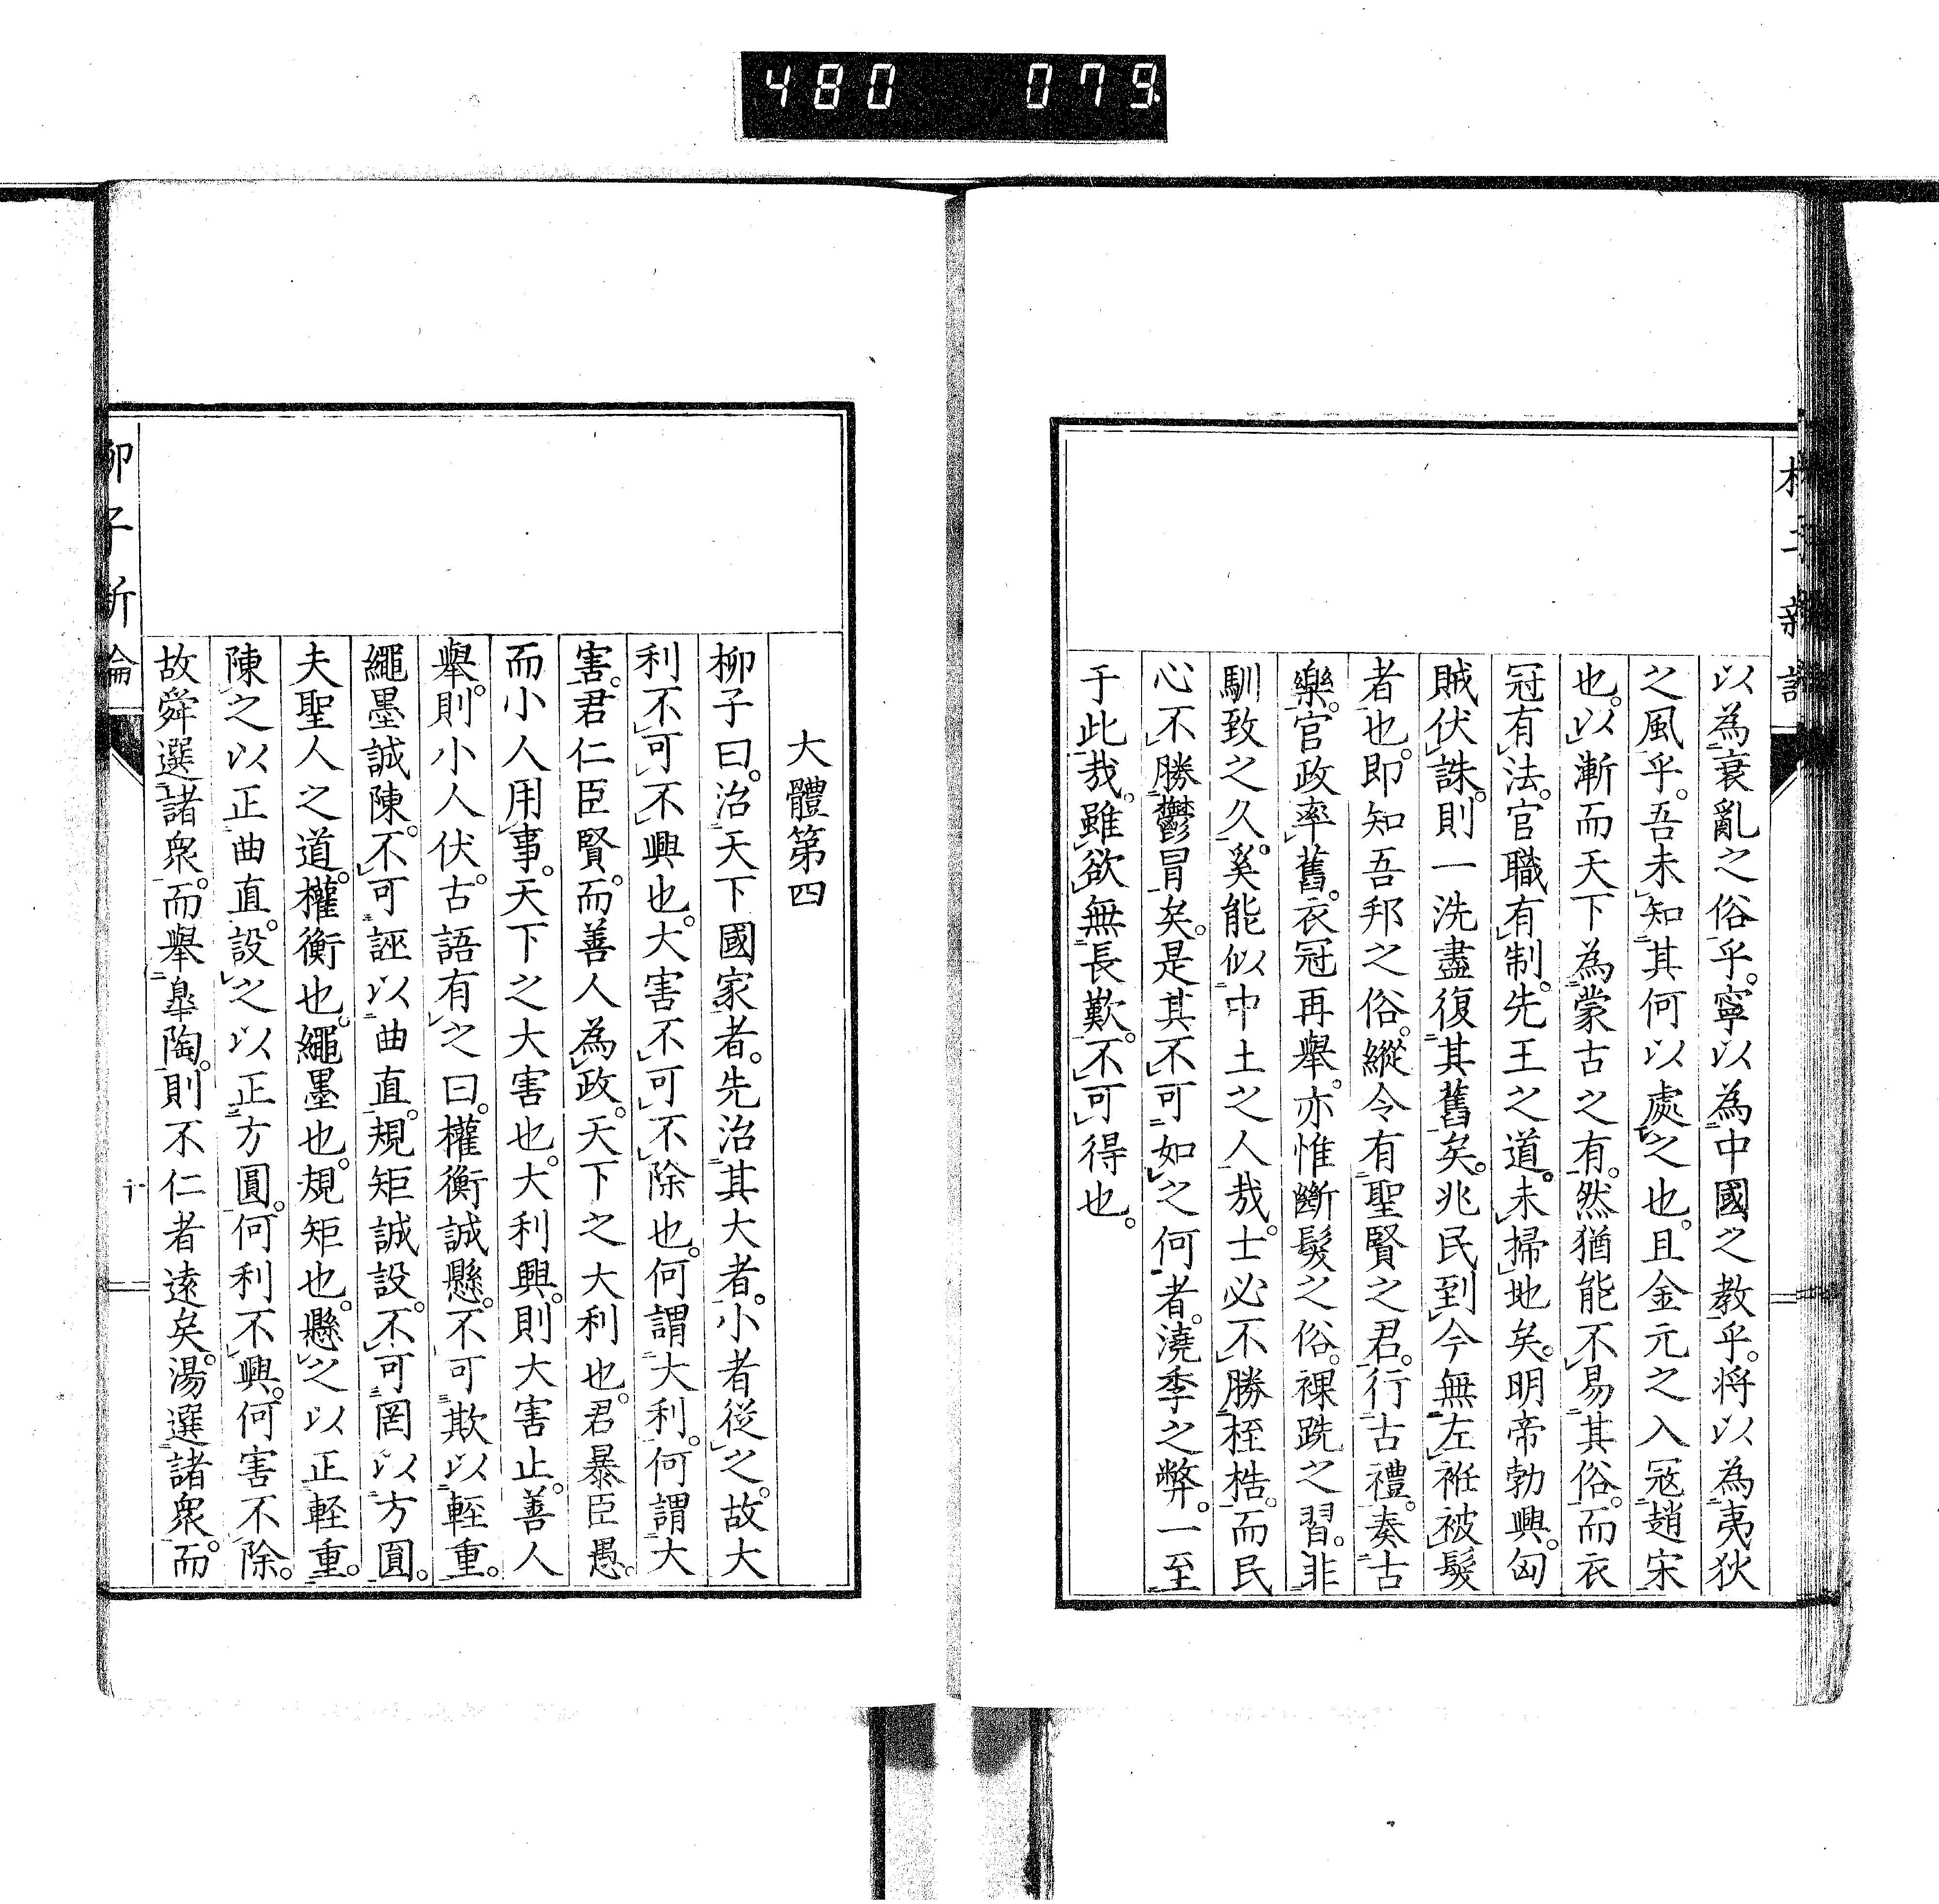 480 079
以為衰亂之俗乎。寧以為中國之教乎。將以為夷狄
之風乎。吾未知其何以處之也。且金元之入寇趙宋
也。以漸而天下為蒙古之有。然猶能不易其俗。而衣
冠有法。官職有制。先王之道。未掃地矣。明帝勃興。匈
賊伏誅。則一洗盡復其舊矣。兆民到今無左衽被髮
者也。即知吾邦之俗。縱令有聖賢之君。行古禮。奏古
樂。官政率舊。衣冠再舉。亦惟斷髮之俗。裸跣之習。非
馴致之久。奚能似中土之人哉。士必不勝桎梏。而民
心不勝鬱冒矣。是其不可如之何者。澆季之弊。一至
于此哉。雖欲無長歎。不可得也。
大體第四
柳子曰。治天下國家者。先治其大者。小者從之。故大
利不可不興也。大害不可不除也。何謂大利。何謂大
害。君仁臣賢。而善人為政。天下之大利也。君暴臣愚。
而小人用事。天下之大害也。大利興。則大害止。善人
舉。則小人伏。古語有之曰。權衡誠懸。不可欺以輕重。
繩墨誠陳。不可誣以曲直。規矩誠設。不可罔以方圓。
夫聖人之道。權衡也。繩墨也。規矩也。懸之以正輕重。
陳之以正曲直。設之以正方圓。何利不興。何害不除。
故舜選諸衆。而舉皐陶。則不仁者遠矣。湯選諸衆。而
柳子新論
十